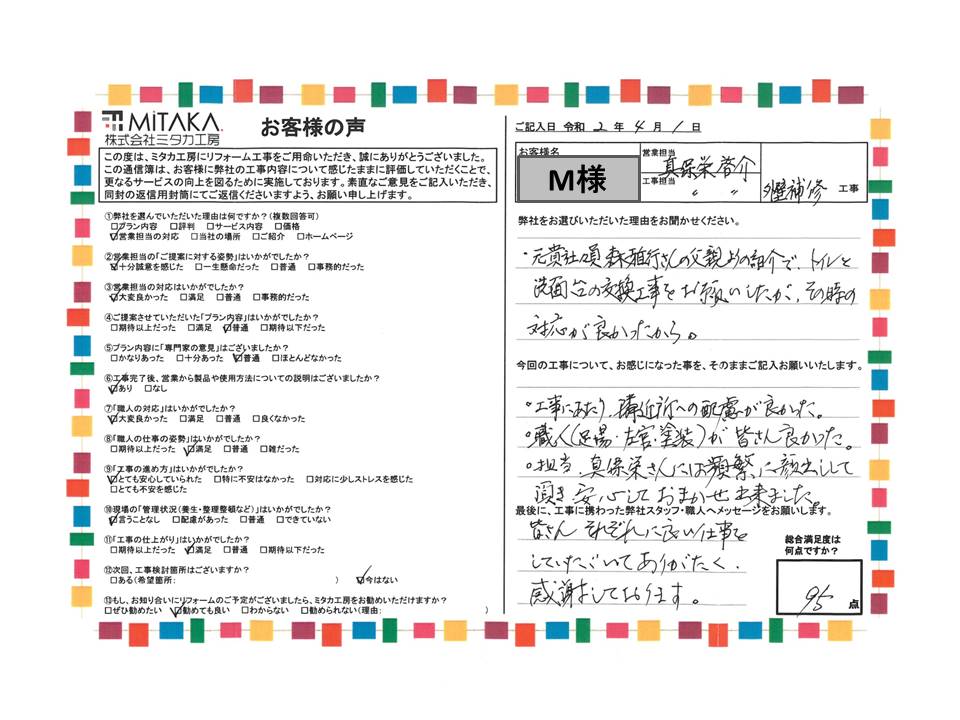 MiTAKA.
株式会社ミタカ工房
お客様の声
この度は、ミタカ工房にリフォーム工事をご用命いただき、誠にありがとうございました。
この通信簿は、お客様に弊社の工事内容について感じたままに評価していただくことで、
更なるサービスの向上を図るために実施しております。素直なご意見をご記入いただき、
同封の返信用封筒にてご返信くださいますよう、お願い申し上げます。
①弊社を選んでいただいた理由は何ですか？(複数回答可)
□プラン内容 □評判 □サービス内容 □価格
☑営業担当の対応 □当社の場所 □ご紹介 □ホームページ
②営業担当の「ご提案に対する姿勢」はいかがでしたか？
☑十分誠意を感じた □一生懸命だった □普通 □事務的だった
③営業担当の対応はいかがでしたか？
☑大変良かった □満足 □普通 □事務的だった
④ご提案させていただいた「プラン内容」はいかがでしたか？
□期待以上だった □満足 ☑普通 □期待以下だった
⑤プラン内容に「専門家の意見」はございましたか？
□かなりあった □十分あった ☑普通 □ほとんどなかった
⑥工事完了後、営業から製品や使用方法についての説明はございましたか？
☑あり □なし
⑦「職人の対応」はいかがでしたか？
☑大変良かった □満足 □普通 □良くなかった
⑧「職人の仕事の姿勢」はいかがでしたか？
□期待以上だった ☑満足 □普通 □雑だった
⑨「工事の進め方」はいかがでしたか？
☑とても安心していられた □特に不安はなかった □対応に少しストレスを感じた
□とても不安を感じた
⑩現場の「管理状況(養生・整理整頓など)」はいかがでしたか？
☑言うことなし □配慮があった □普通 □できていない
⑪「工事の仕上がり」はいかがでしたか？
□期待以上だった ☑満足 □普通 □期待以下だった
⑫次回、工事検討箇所はございますか？
□ある(希望箇所: ) ☑今はない
⑬もし、お知り合いにリフォームのご予定がございましたら、ミタカ工房をお勧めいただけますか？
□ぜひ勧めたい ☑勧めても良い □わからない □勧められない(理由: )
ご記入日 令和 2 年 4 月 1 日
お客様名
M様
営業担当
真保栄啓介
工事担当
〃 〃
外壁補修 工事
弊社をお選びいただいた理由をお聞かせください。
・元貴社社員 森雅行さんの父親よりの紹介で、トイレと
洗面台の交換工事をお願いしたが、その時の
対応が良かったから。
今回の工事について、お感じになった事を、そのままご記入お願いいたします。
・工事にあたり、隣近所への配慮が良かった。
・職人(足場・左官・塗装)が皆さん良かった。
・担当 真保栄さんには頻繁に顔出しして
頂き安心しておまかせ出来ました。
最後に、工事に携わった弊社スタッフ・職人へメッセージをお願いします。
皆さんそれぞれに良い仕事を
していただいてありがたく、
感謝しております。
総合満足度は
何点ですか？
95 点